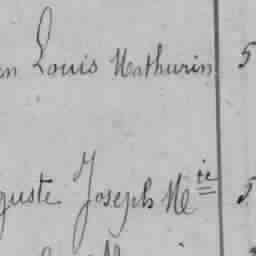 n Louis Mathurin 5
guste Joseph M ie 5